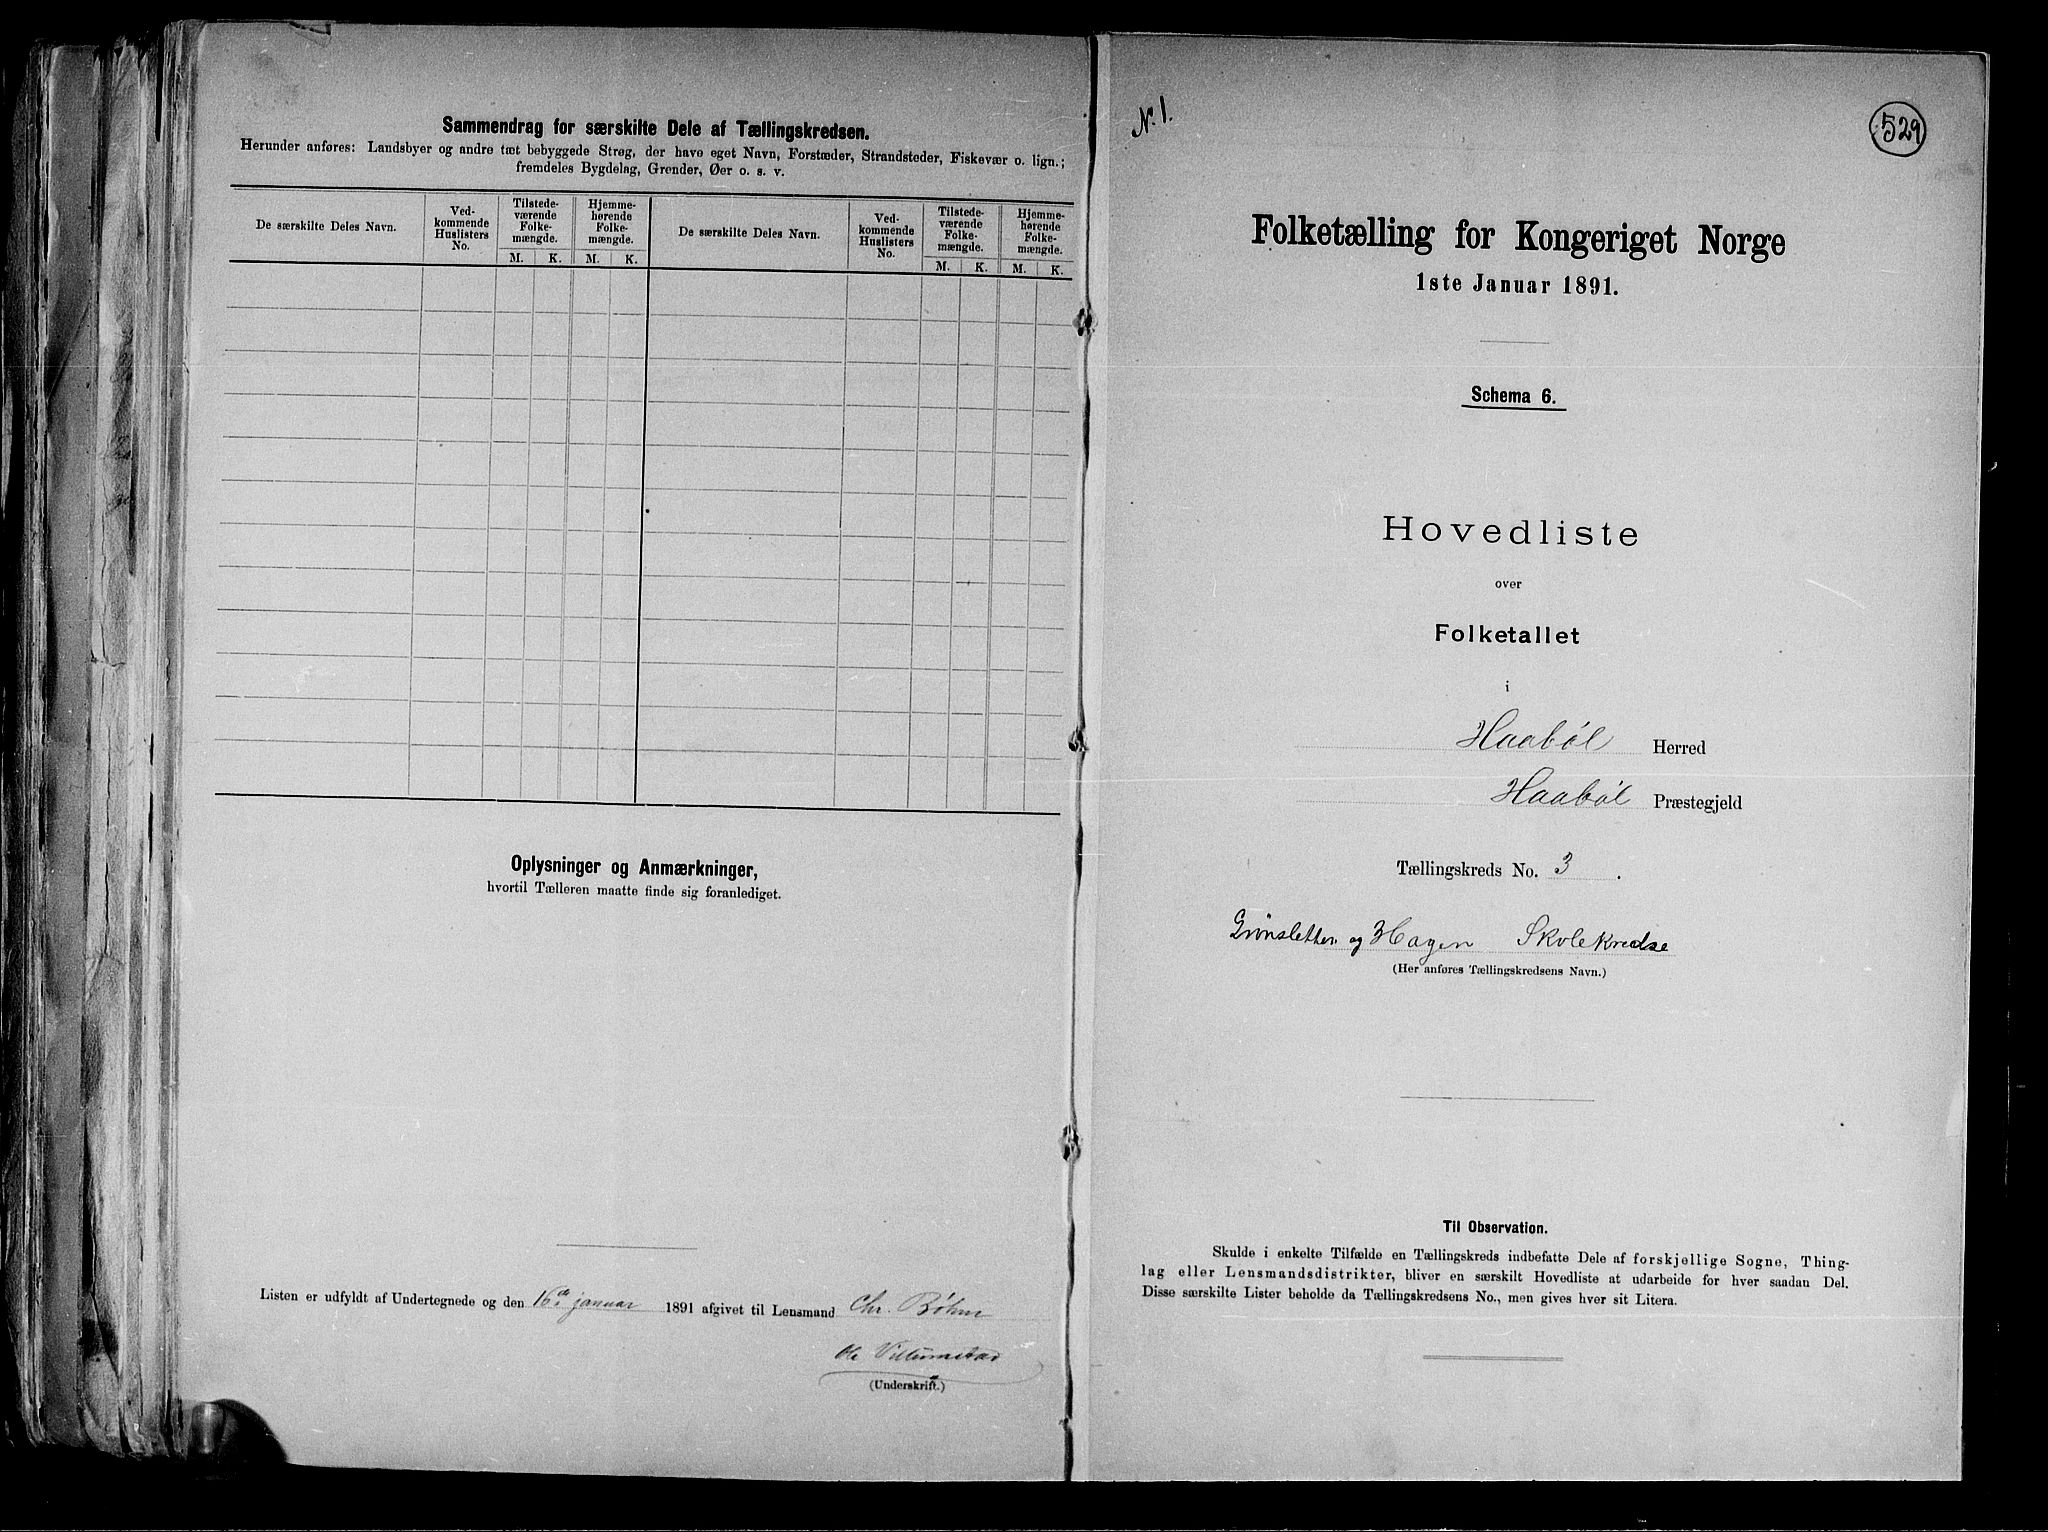 Sammendrag for særskilte Dele af Tællingskredsen.
Herunder anføres: Landsbyer og andre tæt bebyggede Strøg, der have eget Navn, Forstæder, Strandsteder, Fiskevær o. lign.;
fremdeles Bygdelag, Grender, Øer o. s. v.
De særskilte Deles Navn.
Ved-
kommende
Huslisters
No.
Tilstede-
værende
Folke-
mængde.
Hjemme-
hørende
Folke-
mængde.
M. K. M. K.
De særskilte Deles Navn.
Ved-
kommende
Huslisters
No.
Tilstede-
værende
Folke-
mængde.
Hjemme-
hørende
Folke-
mængde.
M. K. M. K.
Oplysninger og Anmærkninger,
hvortil Tælleren maatte finde sig foranlediget.
Listen er udfyldt af Undertegnede og den 16de januar 1891 afgivet til Lensmand Chr. Böhm
Ole
(Underskrift.)
N. 1.
529
Folketælling for Kongeriget Norge
1ste Januar 1891.
Schema 6.
Hovedliste
over
Folketallet
i
Haabøl Herred
Haabøl Præstegjeld
Tællingskreds No. 3.
Grønsletten og Hagen Skolekredse
(Her anføres Tællingskredsens Navn.)
Til Observation.
Skulde i enkelte Tilfælde en Tællingskreds indbefatte Dele af forskjellige Sogne, Thing-
lag eller Lensmandsdistrikter, bliver en særskilt Hovedliste at udarbeide for hver saadan Del.
Disse særskilte Lister beholde da Tællingskredsens No., men gives hver sit Litera.